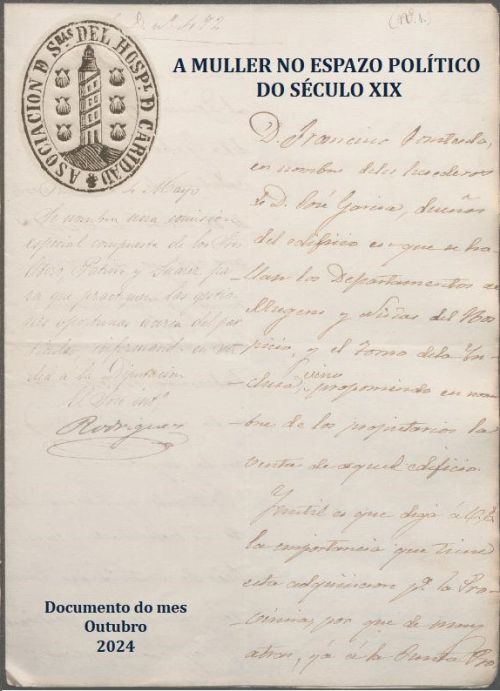 S. D. Nº 492
(Nº 1.)
ASOCIACION D SRAS DEL HOSPL D CARIDAD
A MULLER NO ESPAZO POLÍTICO
DO SÉCULO XIX
D. Francisco
en nombre de los herederos
de D. José Garcia, dueños
del edificio en que se ha-
llan los Departamentos de
Mugeres y Niñas del Hos-
picio, y el Torno de la In-
clusa, vino proponiendo en nom-
bre de los propietarios la
venta de aquel edificio.
Inutil es que diga á V.E.
la importancia que tiene
esta adquisicion pª. la Pro-
vincia, por que de muy
atras, ya á la Junta Pro
de Mayo
Se nombra una comision
especial compuesta de los Sres
Patiño y Suarez pa-
ra que practiquen las gestio-
nes oportunas acerca del par-
ticular informando en su
dia a la Diputacion
Rodriguez
Documento do mes
Outubro
2024